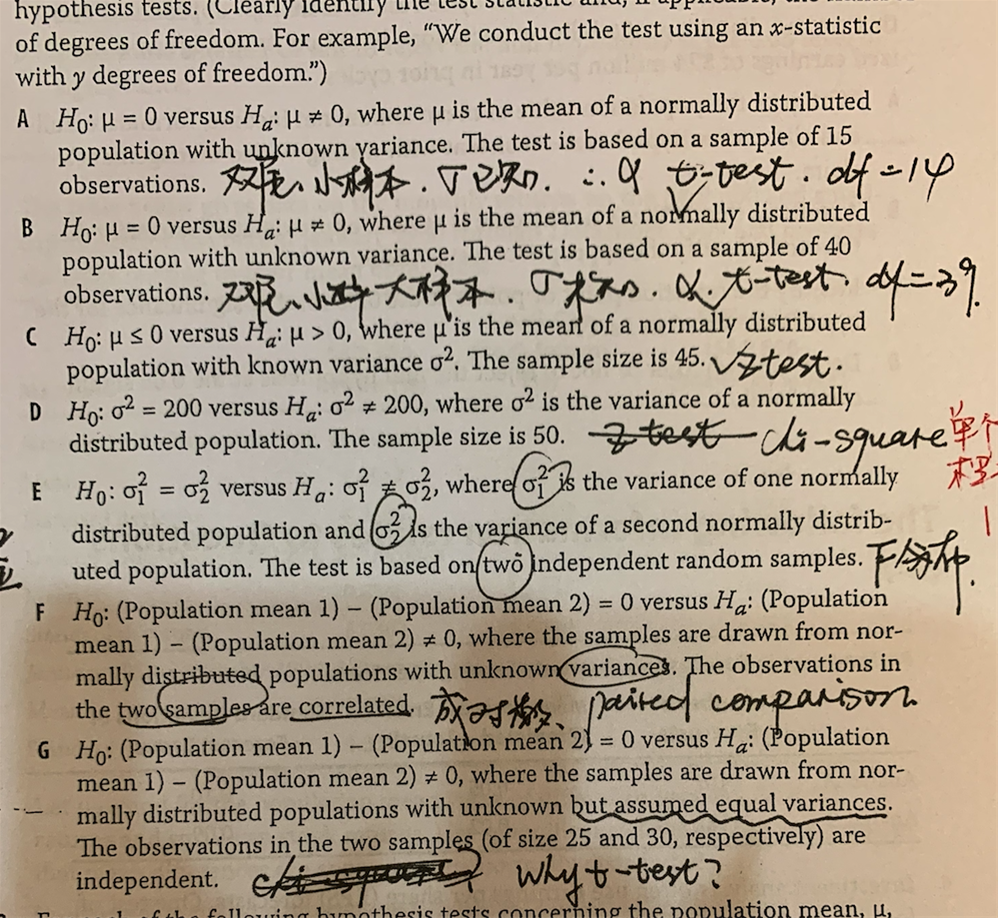 hypothesis tests. (Clearly identify the test statistic and, if applicable, the
of degrees of freedom. For example, “We conduct the test using an x-statistic
with y degrees of freedom.”)
A H₀: μ = 0 versus Hₐ: μ ≠ 0, where μ is the mean of a normally distributed
population with unknown variance. The test is based on a sample of 15
observations. 双尾、小样本. σ已知. ∴ t-test. df=14
B H₀: μ = 0 versus Hₐ: μ ≠ 0, where μ is the mean of a normally distributed
population with unknown variance. The test is based on a sample of 40
observations. 双尾、大样本. σ未知. t-test. df=39.
C H₀: μ ≤ 0 versus Hₐ: μ > 0, where μ is the mean of a normally distributed
population with known variance σ². The sample size is 45. √z test.
D H₀: σ² = 200 versus Hₐ: σ² ≠ 200, where σ² is the variance of a normally
distributed population. The sample size is 50. z test chi-square 单个
E H₀: σ₁² = σ₂² versus Hₐ: σ₁² ≠ σ₂², where σ₁² is the variance of one normally
distributed population and σ₂² is the variance of a second normally distrib-
uted population. The test is based on two independent random samples. F分布.
F H₀: (Population mean 1) − (Population mean 2) = 0 versus Hₐ: (Population
mean 1) − (Population mean 2) ≠ 0, where the samples are drawn from nor-
mally distributed populations with unknown variances. The observations in
the two samples are correlated. 成对 paired comparison.
G H₀: (Population mean 1) − (Population mean 2) = 0 versus Hₐ: (Population
mean 1) − (Population mean 2) ≠ 0, where the samples are drawn from nor-
mally distributed populations with unknown but assumed equal variances.
The observations in the two samples (of size 25 and 30, respectively) are
independent. chi-square? Why t-test?
of the following hypothesis tests concerning the population mean, μ,